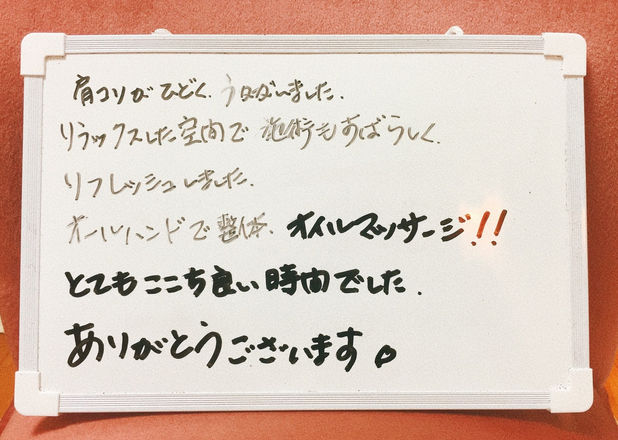 肩コリがひどく、うかがいました.
リラックスした空間で 施術もすばらしく.
リフレッシュしました.
オールハンドで整体. オイルマッサージ!!
とてもここち良い時間でした.
ありがとうございます。